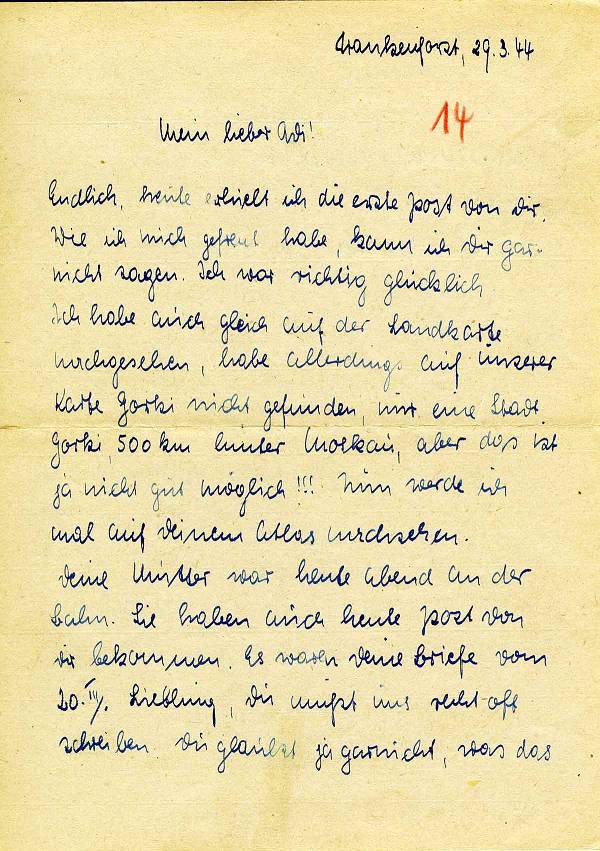 Frankenforst, 29.3.44
14
Mein lieber Adi!
Endlich, heute erhielt ich die erste Post von Dir.
Wie ich mich gefreut habe, kann ich Dir gar-
nicht sagen. Ich war richtig glücklich.
Ich habe auch gleich auf der Landkarte
nachgesehen, habe allerdings auf unserer
Karte Gorki nicht gefunden, nur eine Stadt
Gorki, 500 km hinter Moskau, aber das ist
ja nicht gut möglich!!! Nun werde ich
mal auf Deinem Atlas nachsehen.
Deine Mutter war heute abend an der
Bahn. Sie haben auch heute Post von
Dir bekommen. Es waren Deine Briefe vom
20.III. Liebling, Du mußt uns recht oft
schreiben. Du glaubst ja garnicht, was das